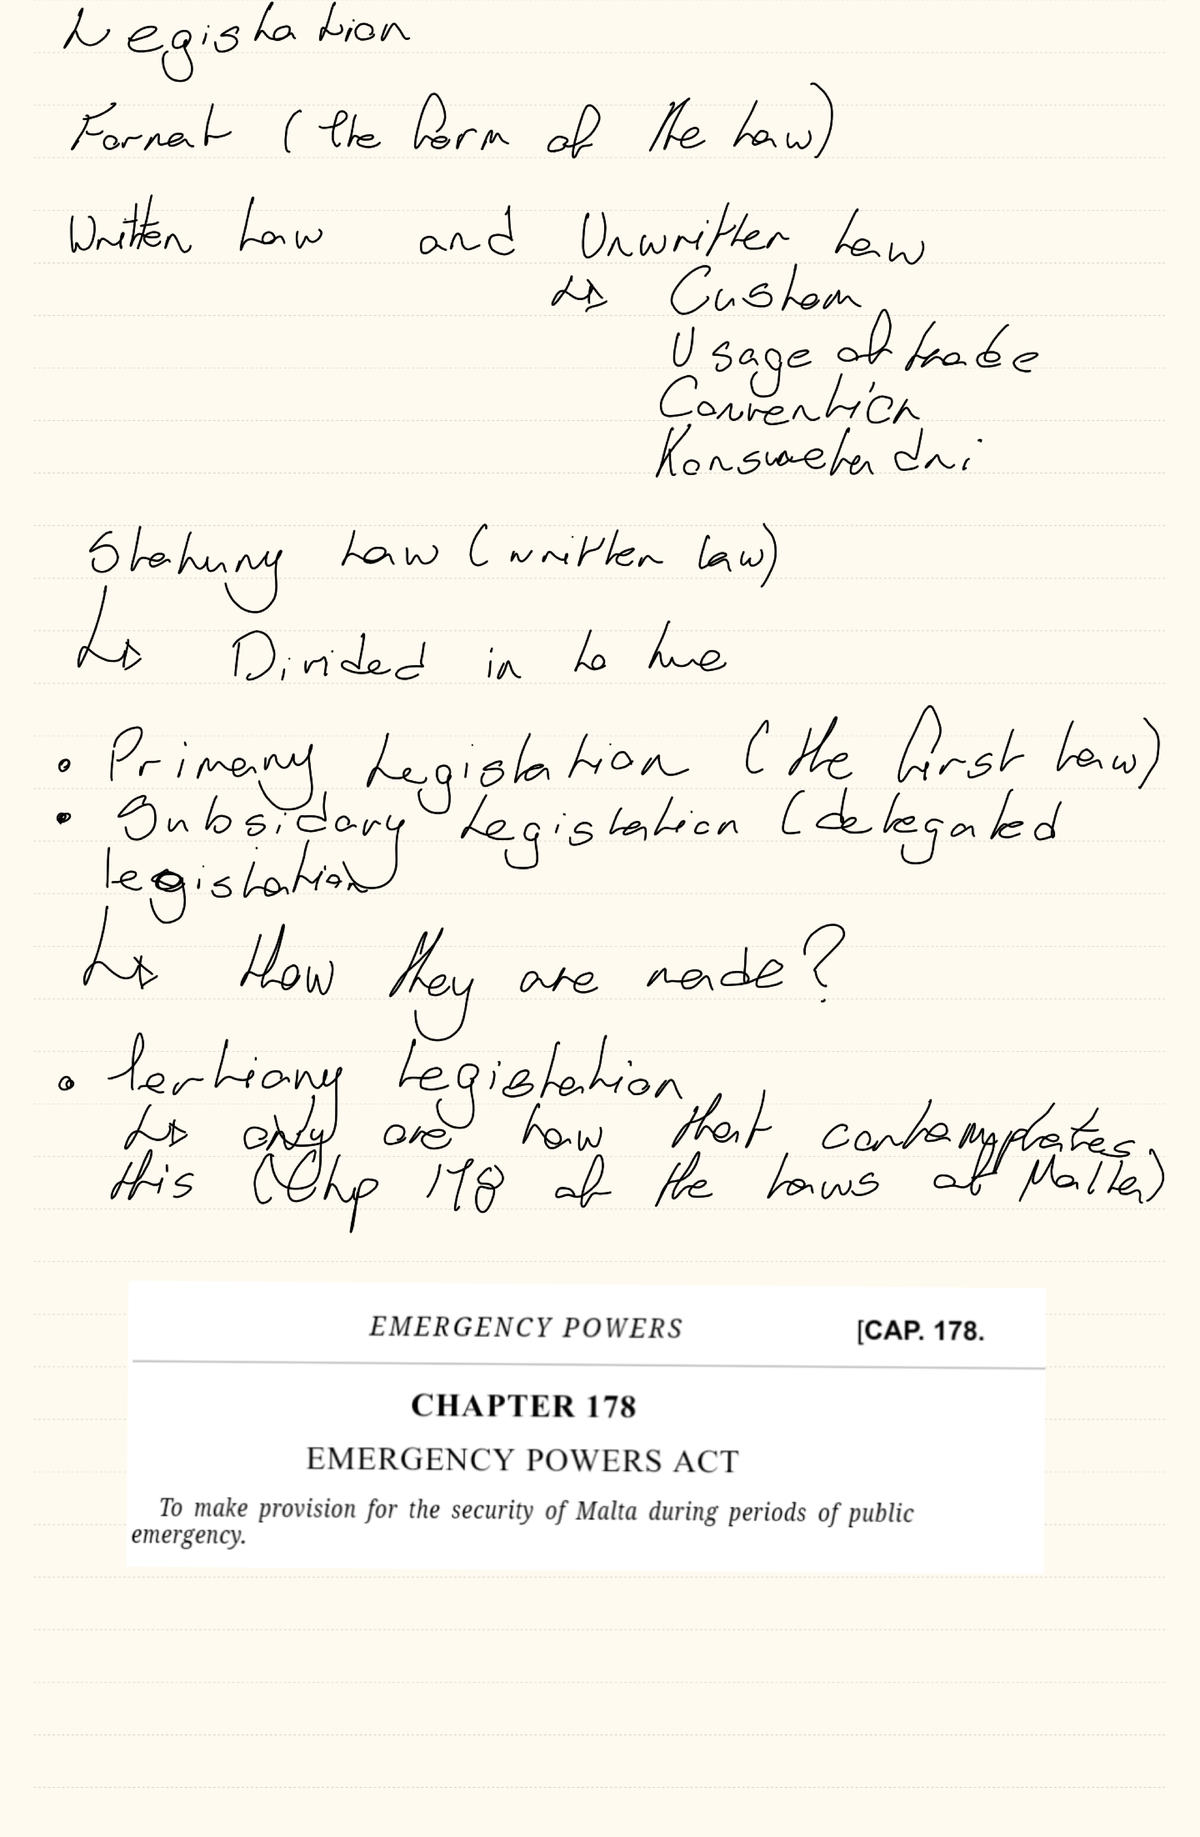 Legislation
Format (the form of the law)
Written Law and Unwritten Law
↳ Custom
Usage of trade
Convention
Konswetudni
Statutory Law (written law)
↳ Divided in to two
• Primary Legislation (the first law)
• Subsidary Legislation (delegated
legislation
↳ How they are made?
• Tertiary Legislation
↳ only one law that contemplates
this (Chp 178 of the laws of Malta)
EMERGENCY POWERS [CAP. 178.
CHAPTER 178
EMERGENCY POWERS ACT
To make provision for the security of Malta during periods of public
emergency.